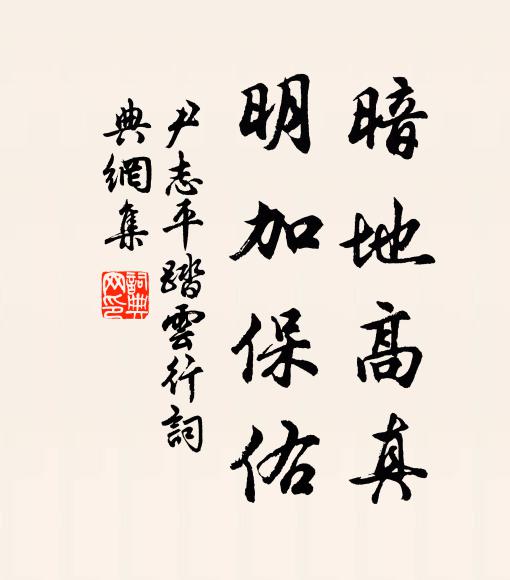 暗地高真
明加保佑
尹志平踏雲行詞
典網集
詞典網印